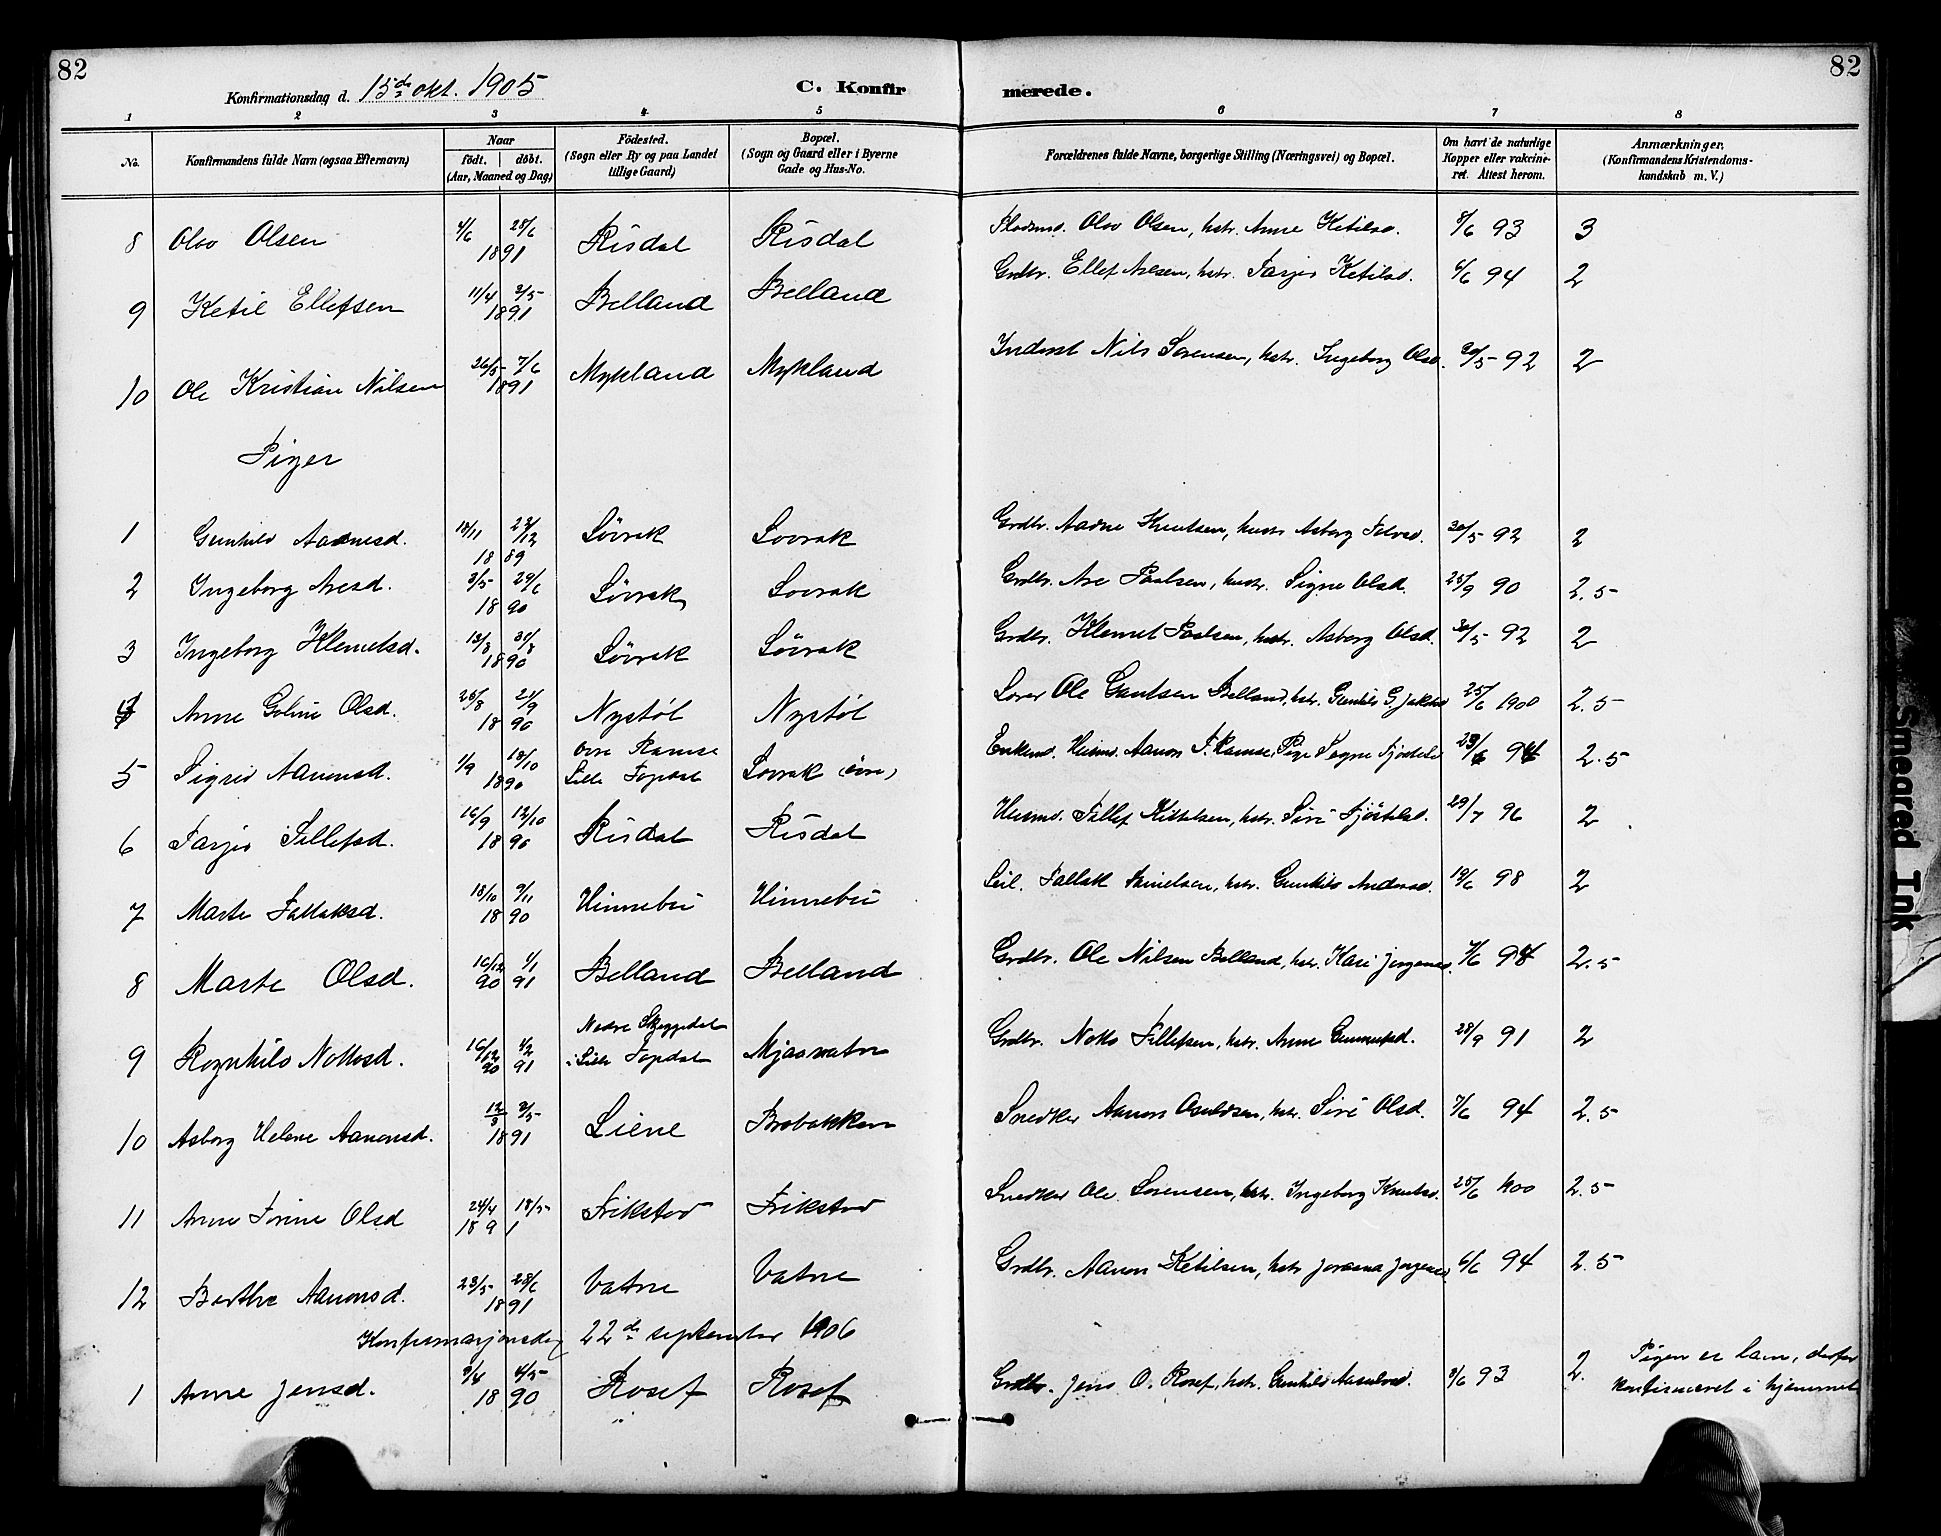 82
Konfirmationsdag d. 15de okt. 1905 C. Konfirmerede. 82
1 2 3 4 5 6 7 8
No. Konfirmandens fulde Navn (ogsaa Efternavn) Naar födt. | döbt. (Aar, Maaned og Dag) Födested. (Sogn eller By og paa Landet tillige Gaard) Bopæl. (Sogn og Gaard eller i Byerne Gade og Hus-No. Forældrenes fulde Navne, borgerlige Stilling (Næringsvei) og Bopæl. Om havt de naturlige Kopper eller vakcineret. Attest herom. Anmærkninger. (Konfirmandens Kristendomskundskab m. V.)
8 Olav Olsen 4/6 28/6 1891 Risdal Risdal Olav Olsen, hstr. Anne Ketilsd. 8/6 93 3
9 Ketil Ellefsen 11/4 3/5 1891 Belland Belland Grdbr. Ellef Nilsen, hstr. Tarjer Ketilsd. 6/6 94 2
10 Ole Kristian Nilsen 26/5 7/6 1891 Mykland Mykland Inderst Nils Sørensen, hstr. Ingeborg Olsd. 20/5 92 2
Piger
1 Gunhild Aadnesd. 18/11 23/12 1889 Lövrak Lovrak Grdbr. Aadne Knutsen, hustr. Asborg Tolvsd. 30/5 92 2
2 Ingeborg Aresd. 3/5 29/6 1890 Lövrak Lovrak Grdbr. Are Paalsen, hustr. Signe Olsd. 25/9 90 2.5
3 Ingeborg Klemetsd. 13/8 31/8 1890 Lövrak Lövrak Grdbr. Klemet Paalsen, hstr. Asborg Olsd. 30/5 92 2
4 Anne Goline Olsd. 26/8 21/9 1890 Nystöl Nystöl Lærer Ole Gautsen Belland, hstr. Gunhild G. Jakobsd 25/6 1900 2.5
5 Sigrid Aanonsd. 1/9 18/10 1890 övre Ramse Lille Topdal Lovrak (övre) Enkemd. Husmd. Aanon T. Ramse, Pige Torgne Fjöstelsd 23/6 94 2.5
6 Tarjer Tellefsd. 16/9 12/10 1890 Risdal Risdal Husmd. Tellef Kittelsen, hstr. Siri Fjöstelsd. 29/7 96 2
7 Marte Tallaksd. 18/10 9/11 1890 Hinnebu Hinnebu Leil. Tallak hstr. Gunhild Andersd. 19/6 98 2
8 Marte Olsd. 16/12 90 1/1 91 Belland Belland Grdbr. Ole Nilsen Belland, hstr. Kari Jørgensd. 7/6 94 2.5
9 Rognhild Nottosd. 16/12 90 1/2 91 Nedre Skeggedal i Lille Topdal Mjaavatn Grdbr. Notto Tellefsen, hstr. Anne Gunnufsd. 28/9 91 2
10 Asborg Helene Aanonsd. 12/3 3/5 1891 Liene Brobakken Snedker Aanon Osuldsen, hstr. Siri Olsd. 7/6 94 2.5
11 Anne Torine Olsd 24/4 18/5 1891 Frikstad Frikstad Snedker Ole Sørensen, hstr. Ingeborg Knutsd. 25/6 1900 2.5
12 Berthe Aanonsd. 23/5 28/6 1891 Vatne Vatne Grdbr. Aanon Ketilsen, hstr Jorunna Jørgensd 6/6 94 2.5
Konfirmasjonsdag 22de september 1906
1 Anne Jensd. 3/4 4/5 1890 Rosef Rosef Grdbr. Jens O. Rosef, hstr. Gunhild 8/6 93 2. Pigen er lam, derfor konfirmeret i hjemmet
Smeared Ink